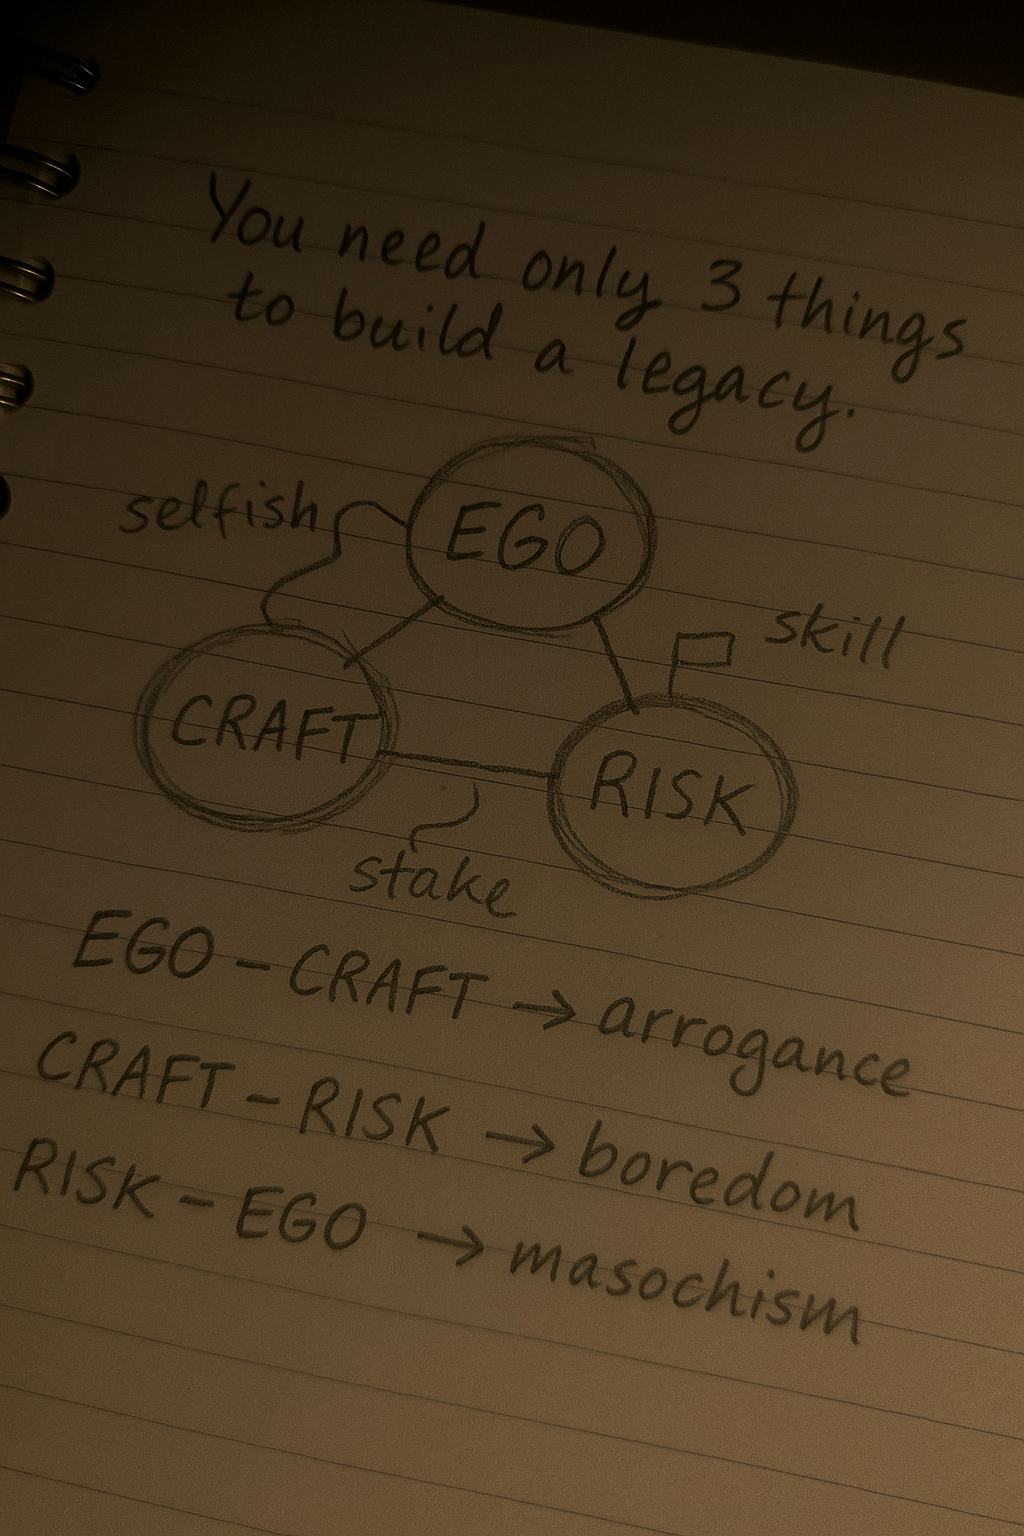 You need only 3 things
to build a legacy.
selfish
EGO
skill
CRAFT
RISK
stake
EGO – CRAFT → arrogance
CRAFT – RISK → boredom
RISK – EGO → masochism